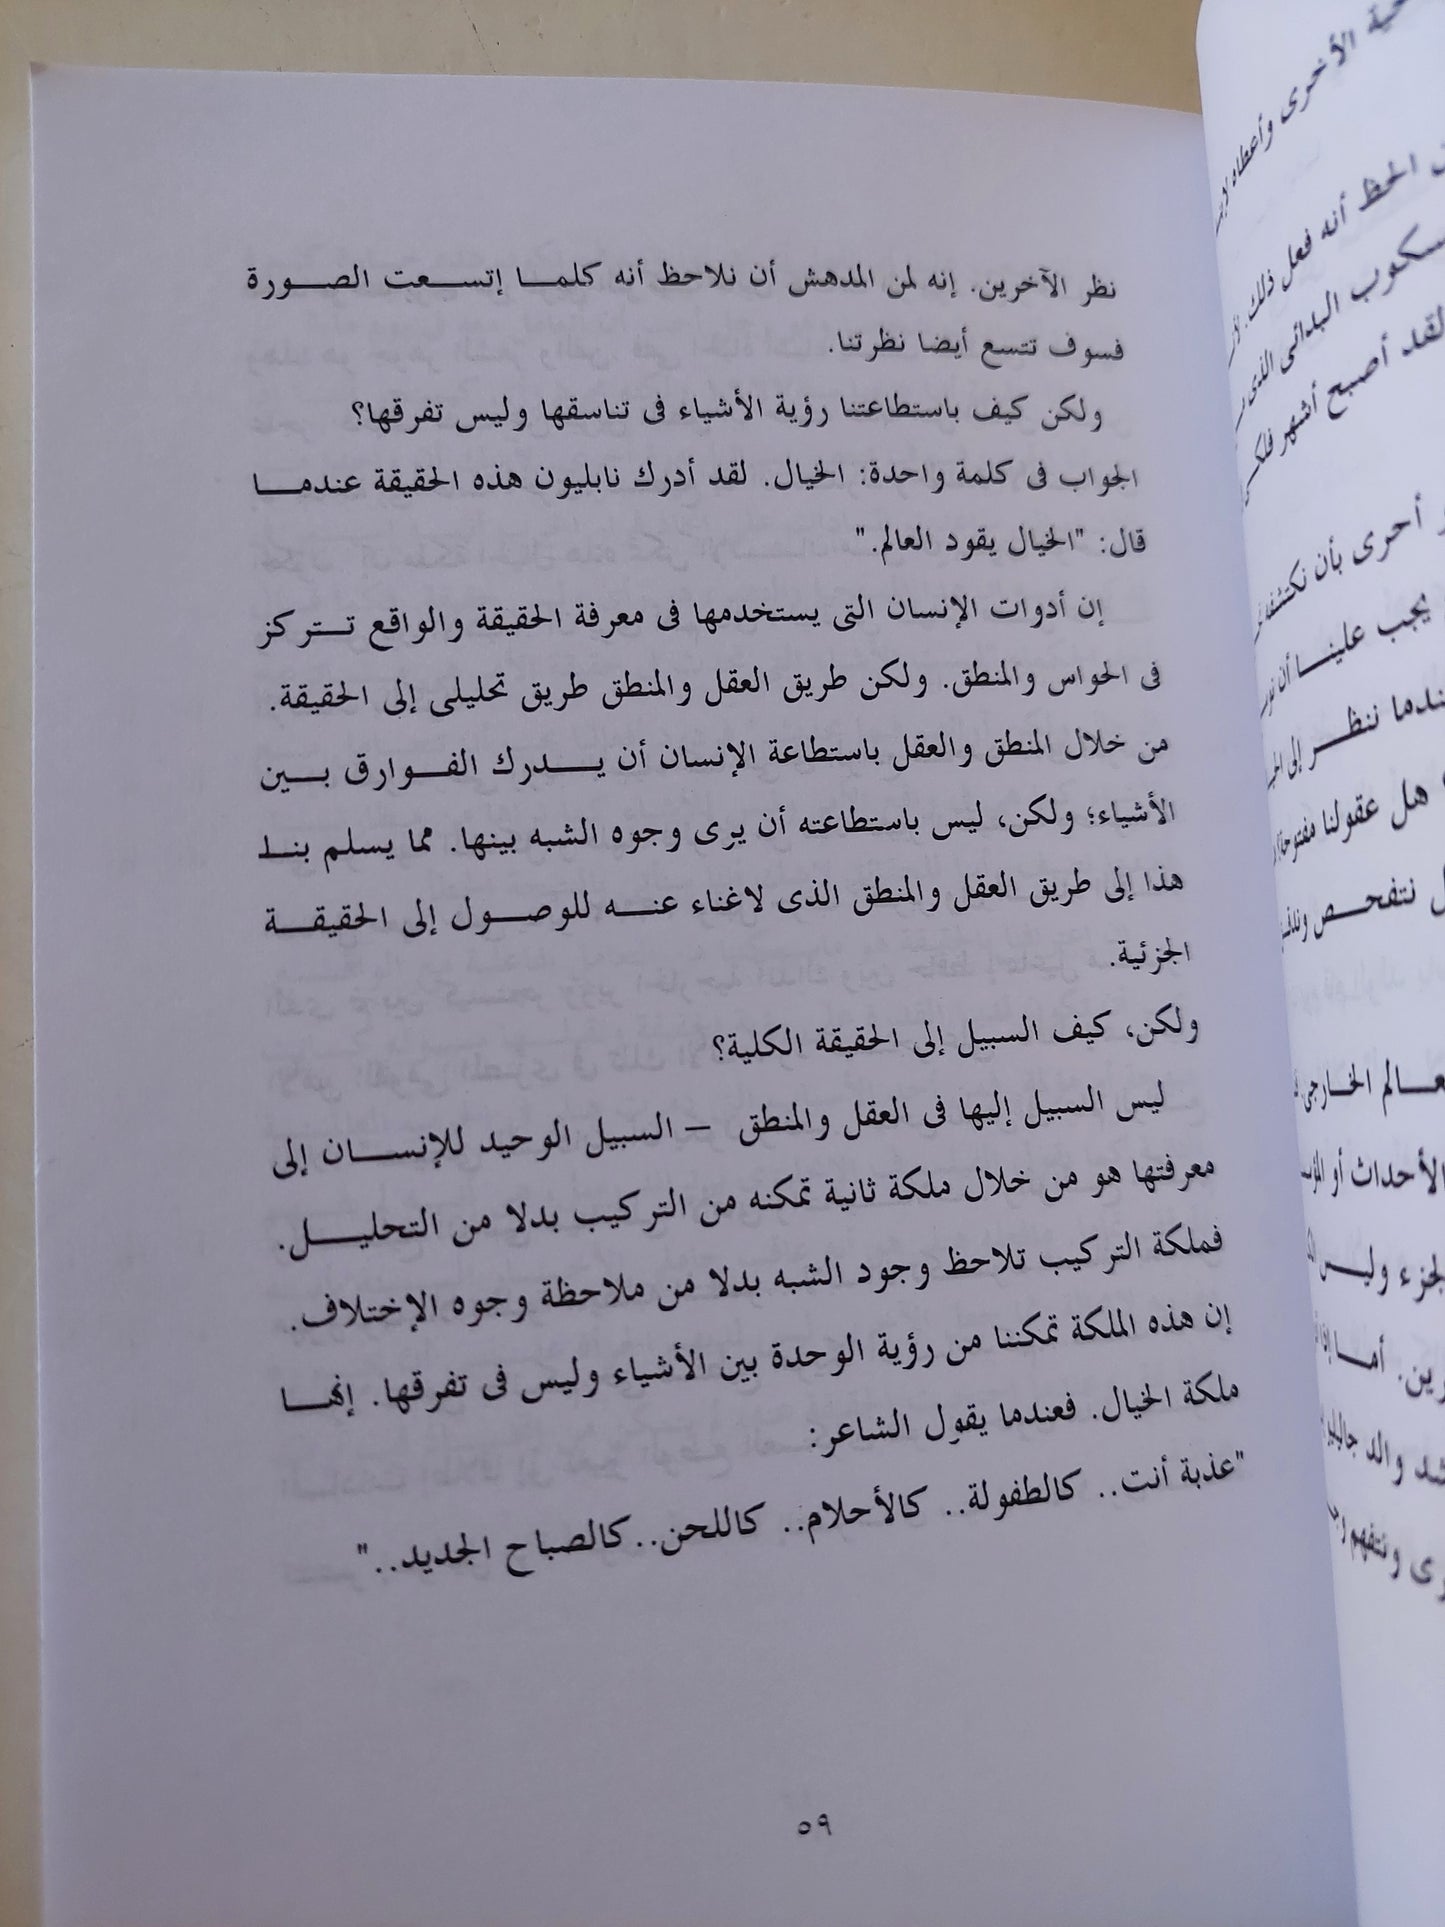 نظر الآخرين. إنه لمن المدهش أن نلاحظ أنه كلمـا إتسـعت الصـورة
فسوف تتسع أيضا نظرتنا.
ولكن كيف باستطاعتنا رؤية الأشياء فى تناسقها وليس تفرقها؟
الجواب فى كلمة واحدة: الخيال. لقد أدرك نابليون هذه الحقيقة عندمـا
قال: "الخيال يقود العالم."
إن أدوات الإنسان التى يستخدمها فى معرفة الحقيقة والواقع تـتركز
فى الحواس والمنطق. ولكن طريق العقل والمنطق طريق تحليلى إلى الحقيقة.
من خلال المنطق والعقل باستطاعة الإنسان أن يـدرك الفـوارق بـين
الأشياء؛ ولكن، ليس باستطاعته أن يرى وجوه الشبه بينها. مما يسلم بنـا
هذا إلى طريق العقل والمنطق الذى لاغناء عنـه للوصـول إلى الحقيقـة
الجزئية.
ولكن، كيف السبيل إلى الحقيقة الكلية؟
ليس السبيل إليها فى العقل والمنطق – السبيل الوحيد للإنسـان إلى
معرفتها هو من خلال ملكة ثانية تمكنه من التركيب بدلا من التحليـل.
فملكة التركيب تلاحظ وجود الشبه بدلا من ملاحظة وجوه الإختلاف.
إن هذه الملكة تمكننا من رؤية الوحدة بين الأشياء وليس فى تفرقها. إنهـا
ملكة الخيال. فعندما يقول الشاعر:
"عذبة أنت.. كالطفولة.. كالأحلام.. كاللحن.. كالصباح الجديد.."
٥٩
الأخرى وأعطاه
الحظ أنه فعل ذلك.
البدائى الذى
لقد أصبح أشهر
أحرى بأن نكتشفه
يجب علينـا أن
ننظـر إلى
هل عقولنا مفتوحة
نتفحـص
الخارجى
الأحداث أو
وليـس
أمـا
والد
ونتفهم